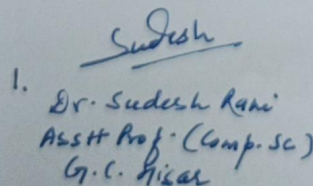 Sudesh
1.
Dr. Sudesh Rani
Asstt Prof. (Comp. Sc)
G.C. Hisar